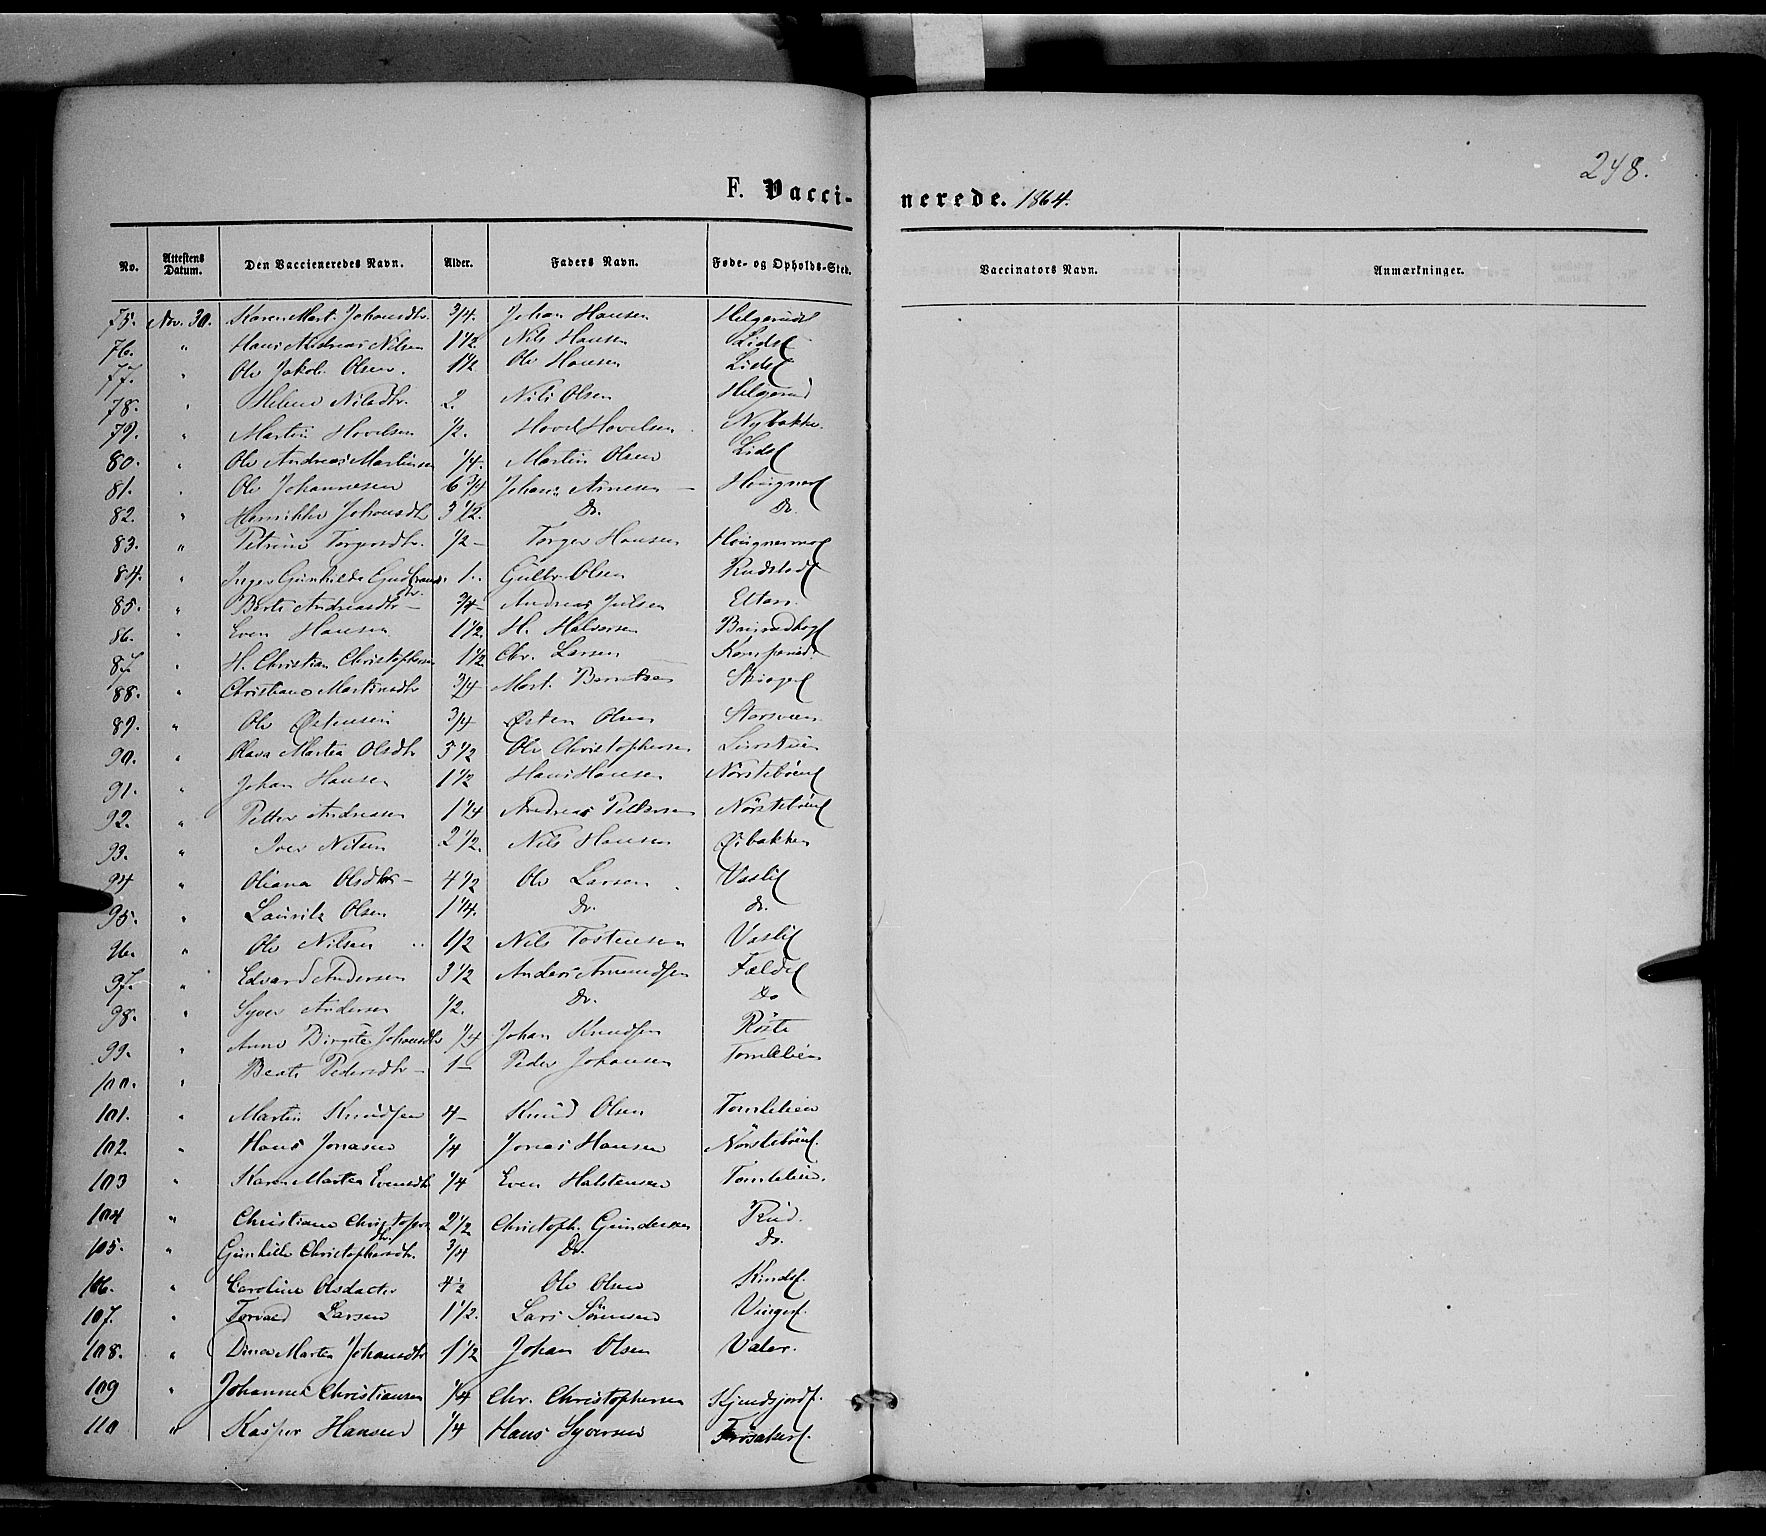 248.
F. Vacci-
nerede. 1864.
No. Attestens Datum. Den Vaccieneredes Navn. Alder. Faders Navn. Føde- og Opholds-Sted. Vaccinators Navn. Anmærkninger.
75. Nov. 30. Karen Mart. Johansdtr. 3/4. Johan Hansen
76. " Hans Andreas Nilsen 1 1/2 Nils Hansen
77. " Ole Jakob Olsen. 1 1/2 Ole Hansen
78. " Helene Nilsdtr. 2. Nils Olsen Helgerud
79. " Martin Hovelsen 1/2. Hovel Hovelsen Nybakke.
80. " Ole Andreas Martinsen 1/4. Martin Olsen
81. " Ole Johannesen 6 3/4 Johans Arnesen
82. " Henrikke Johansdtr 3 1/2. Do. Do.
83. " Petrine Torgersdtr. 1/2 - Torger Hansen
84. " Inger Gunhilde Gudbrandsdtr. 1. Gulbr. Olsen
85. " Berte Andreasdtr - 3/4 - Andreas Julsen
86. " Even Hansen 1 1/2. H. Halvorsen
87. " H. Christian Christophersen 1 1/2 Chr. Larsen
88. " Christiane Martinsdtr 3/4 Mart. Berntsen
89. " Ole Østensen 3/4 Østen Olsen
90. " Olava Martea Olsdtr 3 1/2 Ole Christophersen
91. " Johan Hansen 1 1/2 Hans Hansen
92. " Petter Andreasen 1 1/4 Andreas Pettersen
93. " Iver Nilsen 2 1/2. Nils Hansen
94 " Oliana Olsdtr - 4 1/2 Ole Larsen
95. " Lauritz Olsen 1 1/4. Do. do.
96. " Ole Nilsen 1/2 Nils Tostensen
97. " Edvard Andersen 3 1/2 Anders Amundsen
98. " Syver Andersen 1/2. Do. Do
99. " Anne Birgite Johansdtr 1/4 Johan Knudsen Røste
100. " Beate Pedersdtr - 1 - Peder Johansen Tomlelien
101. " Martin Knudsen 4 - Knud Olsen Tomlelien
102. " Hans Jonasen 1/4 Jonas Hansen
103 " Karen Martea Evensdtr 1/4 Even Halstensen Tomlelien.
104 " Christiane Christophersdtr 2 1/2 Christoph. Gundersen Rud.
105. " Gunhilde Christophersdtr. 3/4 Do. Do.
106. " Caroline Olsdatter 4 1/2 Ole Olsen
107. " Torvald Larsen 1 1/2. Lars Sørensen
108. " Dina Martea Johansdtr 1 1/2 Johan Olsen Valer.
109 " Johannes Christiansen 1/4 Chr. Christophersen
110 " Kasper Hansen 1/4 Hans Syversen